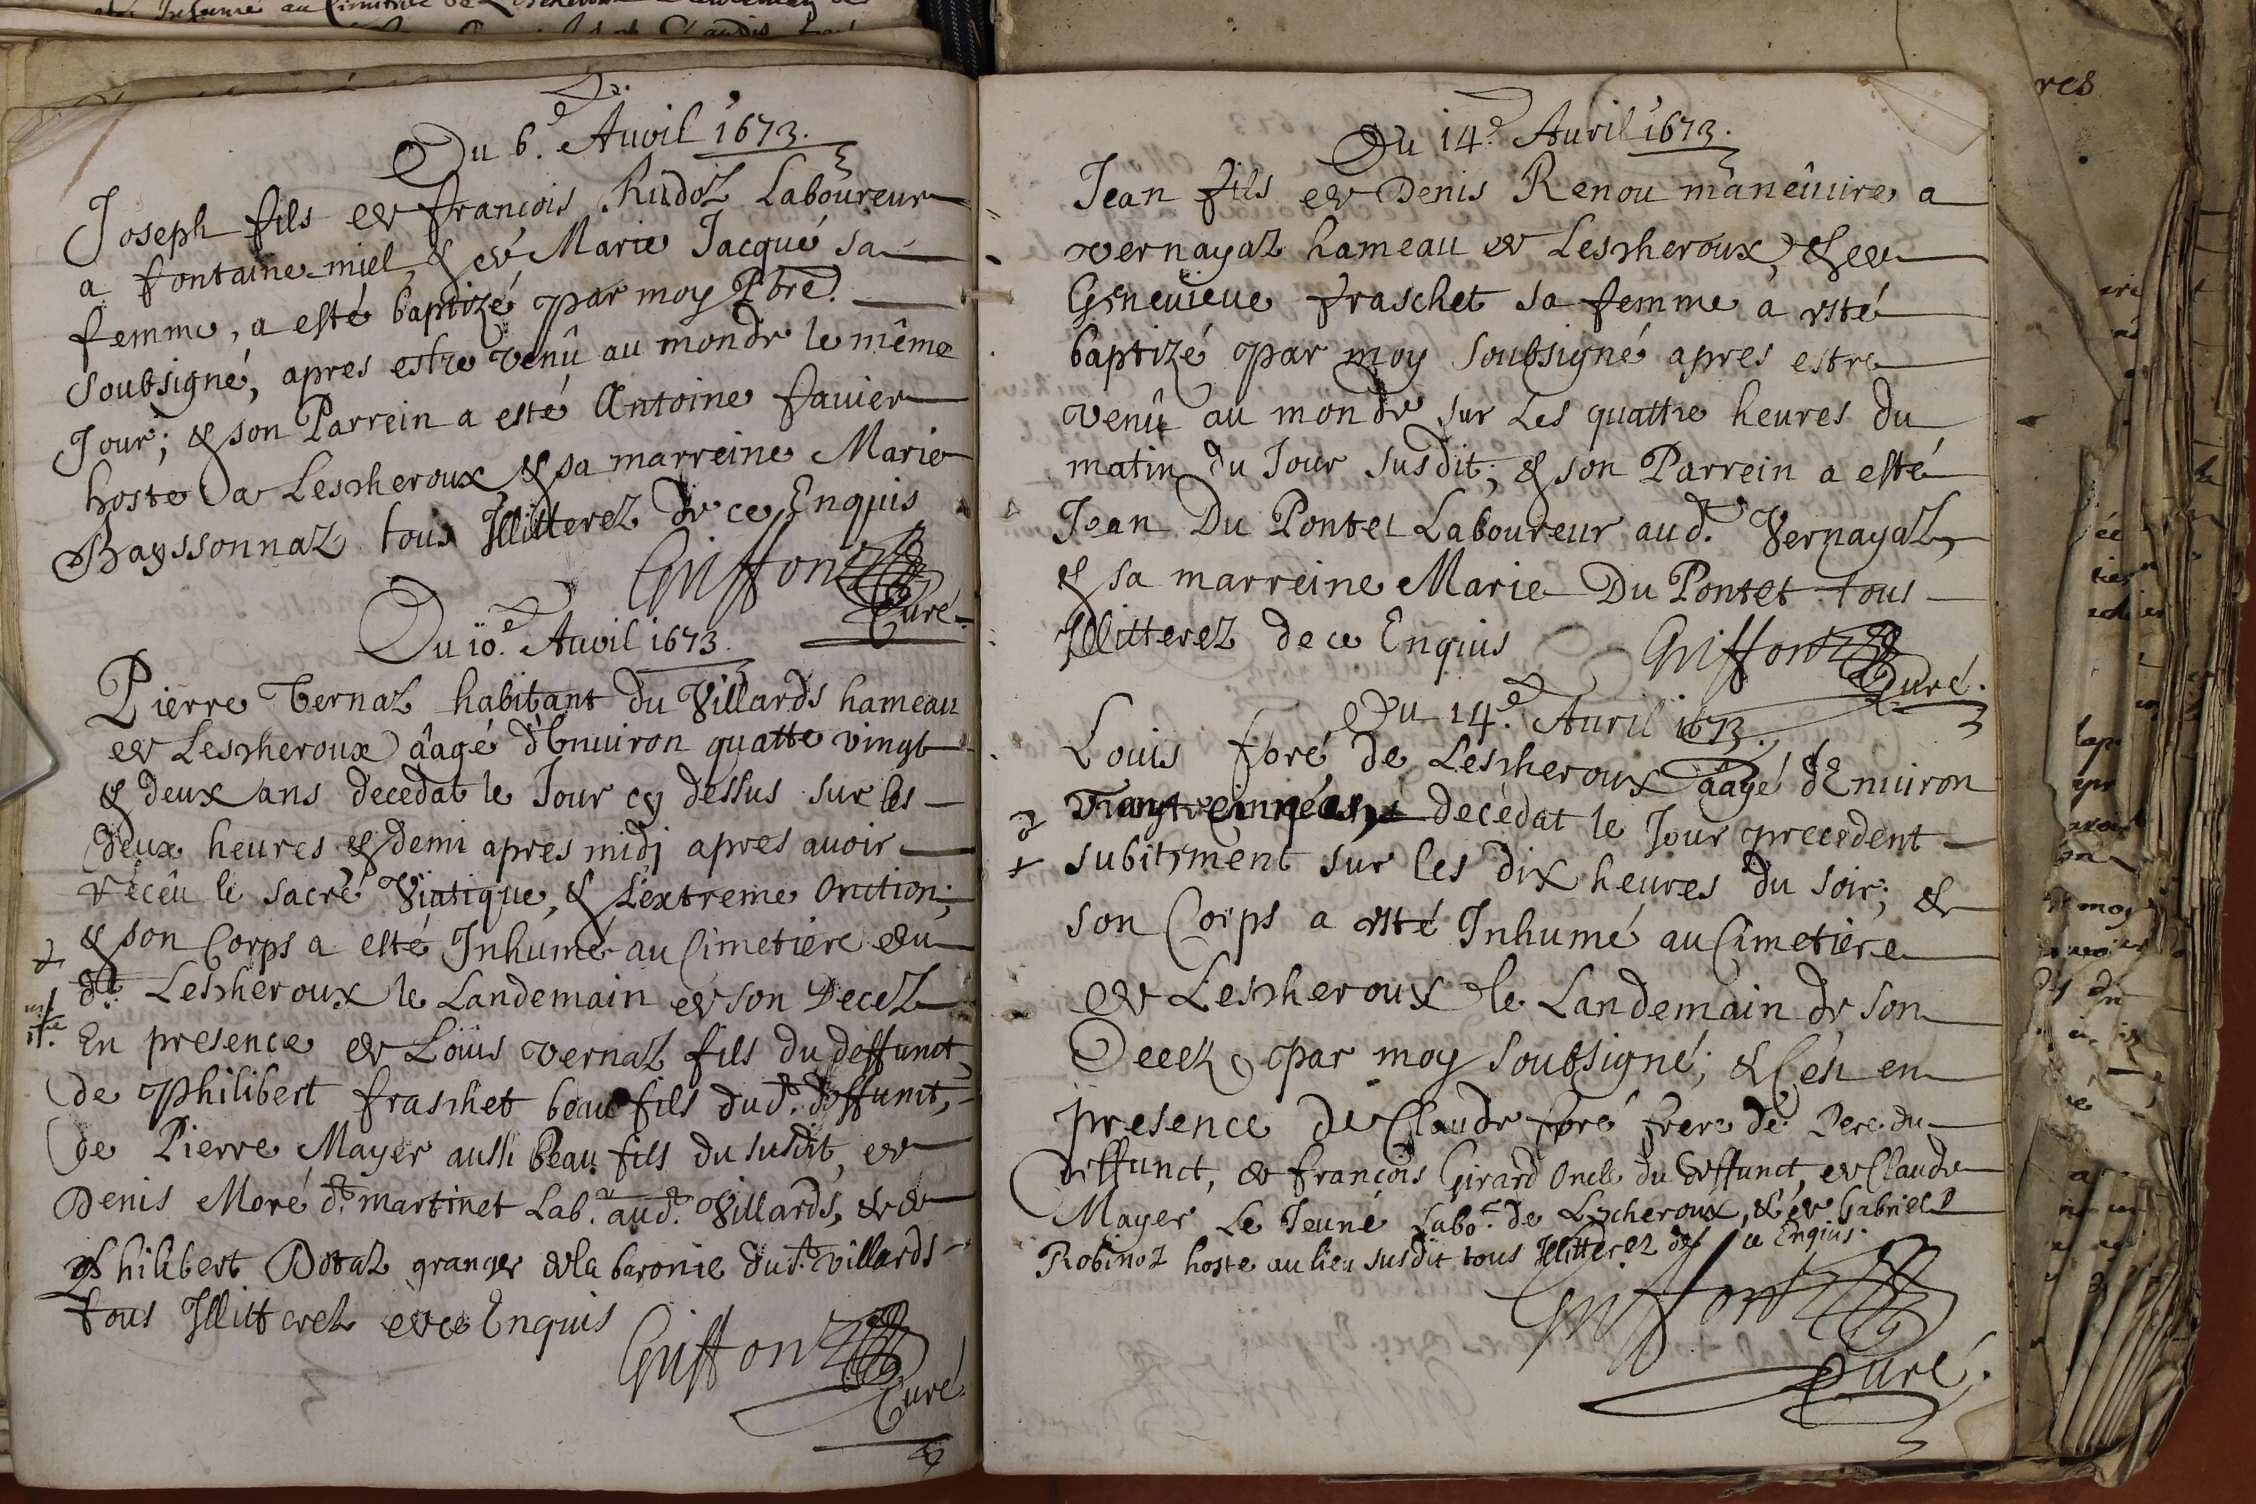 Du 6.e Avvil 1673.
Joseph fils de françois Rudoz Laboureur
a fontaine miel, & de Marie Jacqué sa
femme, a esté baptizé par moy Pbre.
soubsigné, apres estre venû au monde le même
Jour; & son Parrein a esté Antoine favier
hoste a Lescheroux & sa marreine Marie
Bayssonnaz tous Jllitterez de ce Enquis
Griffon
Curé.
Du 10.e Avvil 1673.
Pierre Vernaz habitant du Villards hameau
de Lescheroux âagé d'Environ quatte vingt
& deux ans decedat le Jour cy dessus sur les
deux heures & demi apres midj apres avoir
réceû le sacré Viatique, & L'extreme Onction;
& son Corps a esté Jnhumé au Cimetiere du
dt. Lescheroux le Landemain de son Decez
En presence de Loüis vernaz fils du deffunct
de Philibert fraschet beau fils dud. deffunct,
de Pierre Mayer aussi Beau fils du susdit, de
Denis Moré dt. martinet Lab.r aud. Villards, & de
Philibert Dotaz granger de la baronie dud. villards
tous Jllitterez de ce Enquis
Griffon
Curé.
Du 14.e Avril 1673.
Jean fils de Denis Renou manêuure a
vernayaz hameau de Lescheroux, & de
Genevieve fraschet sa femme a esté
baptizé par moy soubsigné apres estre
venû au monde sur Les quattre heures du
matin du Jour susdit; & son Parrein a esté
Jean Du Pontet Laboureur aud. Vernayaz,
& sa marreine Marie Du Pontet tous
Jllitterez de ce Enquis
Griffon
Curé.
Du 14.e Avril 1673.
Louis foré de Lescheroux âagé d'Environ
decedat le Jour precedent
subitement sur les dix heures du soir; &
son Corps a esté Jnhumé au Cimetiere
de Lescheroux le Landemain de son
Decez, par moy soubsigné; & C'est en
presence de Claude foré frere de Pere du
deffunct, de françois Girard Oncle du deffunct, de Claude
Mayer Le Jeune Labo.r de Lescheroux, & de Gabriel
Robinoz hoste au lieu susdit tous Jllitterez de ce Enquis.
Griffon
Curé.